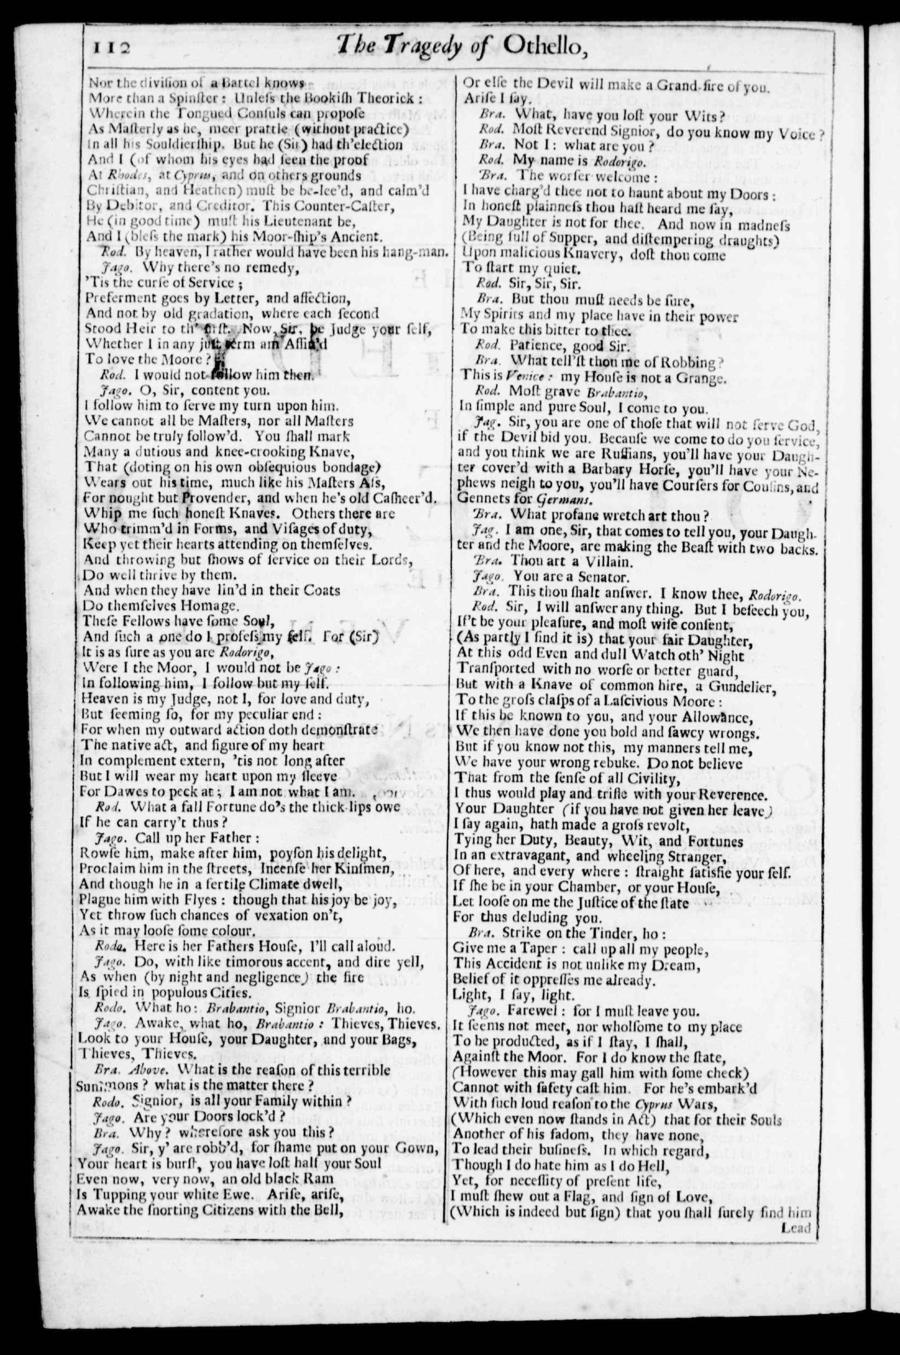 112
The Tragedy of Othello,
Nor the division of a Battel knows
More than a Spinſter: Unleſs the Bookiſh Theorick:
Wherein the Tongued Conſuls can propoſe
As Maſterly as he, meer prattle (without practice)
In all his Souldierſhip. But he (Sir) had th'election
And I (of whom his eyes had ſeen the proof
At Rhodes, at Cyprus, and on others grounds
Chriſtian, and Heathen) muſt be be-lee'd, and calm'd
By Debitor, and Creditor. This Counter-Caſter,
He (in good time) muſt his Lieutenant be,
And I (bleſs the mark) his Moor-ſhip's Ancient.
Rod. By heaven, I rather would have been his hang-man.
Jago. Why there's no remedy,
'Tis the curſe of Service;
Preferment goes by Letter, and affection,
And not by old gradation, where each ſecond
Stood Heir to th' firſt. Now, Sir, be Judge your ſelf,
Whether I in any juſt term am Affin'd
To love the Moore?
Rod. I would not follow him then.
Jago. O, Sir, content you.
I follow him to ſerve my turn upon him.
We cannot all be Maſters, nor all Maſters
Cannot be truly follow'd. You ſhall mark
Many a dutious and knee-crooking Knave,
That (doting on his own obſequious bondage)
Wears out his time, much like his Maſters Aſs,
For nought but Provender, and when he's old Caſheer'd.
Whip me ſuch honeſt Knaves. Others there are
Who trimm'd in Forms, and Viſages of duty,
Keep yet their hearts attending on themſelves.
And throwing but ſhows of ſervice on their Lords,
Do well thrive by them.
And when they have lin'd in their Coats
Do themſelves Homage.
Theſe Fellows have ſome Soul,
And ſuch a one do I profeſs my ſelf. For (Sir)
It is as ſure as you are Rodorigo,
Were I the Moor, I would not be Jago:
In following him, I follow but my ſelf.
Heaven is my Judge, not I, for love and duty,
But ſeeming ſo, for my peculiar end:
For when my outward action doth demonſtrate
The native act, and figure of my heart
In complement extern, 'tis not long after
But I will wear my heart upon my ſleeve
For Dawes to peck at; I am not what I am.
Rod. What a fall Fortune do's the thick-lips owe
If he can carry't thus?
Jago. Call up her Father:
Rowſe him, make after him, poyſon his delight,
Proclaim him in the ſtreets, Incenſe her Kinſmen,
And though he in a fertile Climate dwell,
Plague him with Flyes: though that his joy be joy,
Yet throw ſuch chances of vexation on't,
As it may looſe ſome colour.
Rodo. Here is her Fathers Houſe, I'll call aloud.
Jago. Do, with like timorous accent, and dire yell,
As when (by night and negligence) the fire
Is ſpied in populous Cities.
Rodo. What ho: Brabantio, Signior Brabantio, ho.
Jago. Awake, what ho, Brabantio: Thieves, Thieves.
Look to your Houſe, your Daughter, and your Bags,
Thieves, Thieves.
Bra. Above. What is the reaſon of this terrible
Summons? what is the matter there?
Rodo. Signior, is all your Family within?
Jago. Are your Doors lock'd?
Bra. Why? wherefore ask you this?
Jago. Sir, y' are robb'd, for ſhame put on your Gown,
Your heart is burſt, you have loſt half your Soul
Even now, very now, an old black Ram
Is Tupping your white Ewe. Ariſe, ariſe,
Awake the ſnorting Citizens with the Bell,
Or elſe the Devil will make a Grand-ſire of you.
Ariſe I ſay.
Bra. What, have you loſt your Wits?
Rod. Moſt Reverend Signior, do you know my Voice?
Bra. Not I: what are you?
Rod. My name is Rodorigo.
Bra. The worſer welcome:
I have charg'd thee not to haunt about my Doors:
In honeſt plainneſs thou haſt heard me ſay,
My Daughter is not for thee. And now in madneſs
(Being full of Supper, and diſtempering draughts)
Upon malicious Knavery, doſt thou come
To ſtart my quiet.
Rod. Sir, Sir, Sir.
Bra. But thou muſt needs be ſure,
My Spirits and my place have in their power
To make this bitter to thee.
Rod. Patience, good Sir.
Bra. What tell'ſt thou me of Robbing?
This is Venice: my Houſe is not a Grange.
Rod. Moſt grave Brabantio,
In ſimple and pure Soul, I come to you.
Jag. Sir, you are one of thoſe that will not ſerve God,
if the Devil bid you. Becauſe we come to do you ſervice,
and you think we are Ruffians, you'll have your Daugh-
ter cover'd with a Barbary Horſe, you'll have your Ne-
phews neigh to you, you'll have Courſers for Couſins, and
Gennets for Germans.
Bra. What profane wretch art thou?
Jag. I am one, Sir, that comes to tell you, your Daugh-
ter and the Moore, are making the Beaſt with two backs.
Bra. Thou art a Villain.
Jago. You are a Senator.
Bra. This thou ſhalt anſwer. I know thee, Rodorigo.
Rod. Sir, I will anſwer any thing. But I beſeech you,
If't be your pleaſure, and moſt wiſe conſent,
(As partly I find it is) that your fair Daughter,
At this odd Even and dull Watch oth' Night
Tranſported with no worſe or better guard,
But with a Knave of common hire, a Gundelier,
To the groſs claſps of a Laſcivious Moore:
If this be known to you, and your Allowance,
We then have done you bold and ſawcy wrongs.
But if you know not this, my manners tell me,
We have your wrong rebuke. Do not believe
That from the ſenſe of all Civility,
I thus would play and trifle with your Reverence.
Your Daughter (if you have not given her leave)
I ſay again, hath made a groſs revolt,
Tying her Duty, Beauty, Wit, and Fortunes
In an extravagant, and wheeling Stranger,
Of here, and every where: ſtraight ſatisfie your ſelf.
If ſhe be in your Chamber, or your Houſe,
Let looſe on me the Juſtice of the ſtate
For thus deluding you.
Bra. Strike on the Tinder, ho:
Give me a Taper: call up all my people,
This Accident is not unlike my Dream,
Belief of it oppreſſes me already.
Light, I ſay, light.
Jago. Farewel: for I muſt leave you.
It ſeems not meet, nor wholſome to my place
To be producted, as if I ſtay, I ſhall,
Againſt the Moor. For I do know the ſtate,
(However this may gall him with ſome check)
Cannot with ſafety caſt him. For he's embark'd
With ſuch loud reaſon to the Cyprus Wars,
(Which even now ſtands in Act) that for their Souls
Another of his fadom, they have none,
To lead their buſineſs. In which regard,
Though I do hate him as I do Hell,
Yet, for neceſſity of preſent life,
I muſt ſhew out a Flag, and ſign of Love,
(Which is indeed but ſign) that you ſhall ſurely find him
Lead